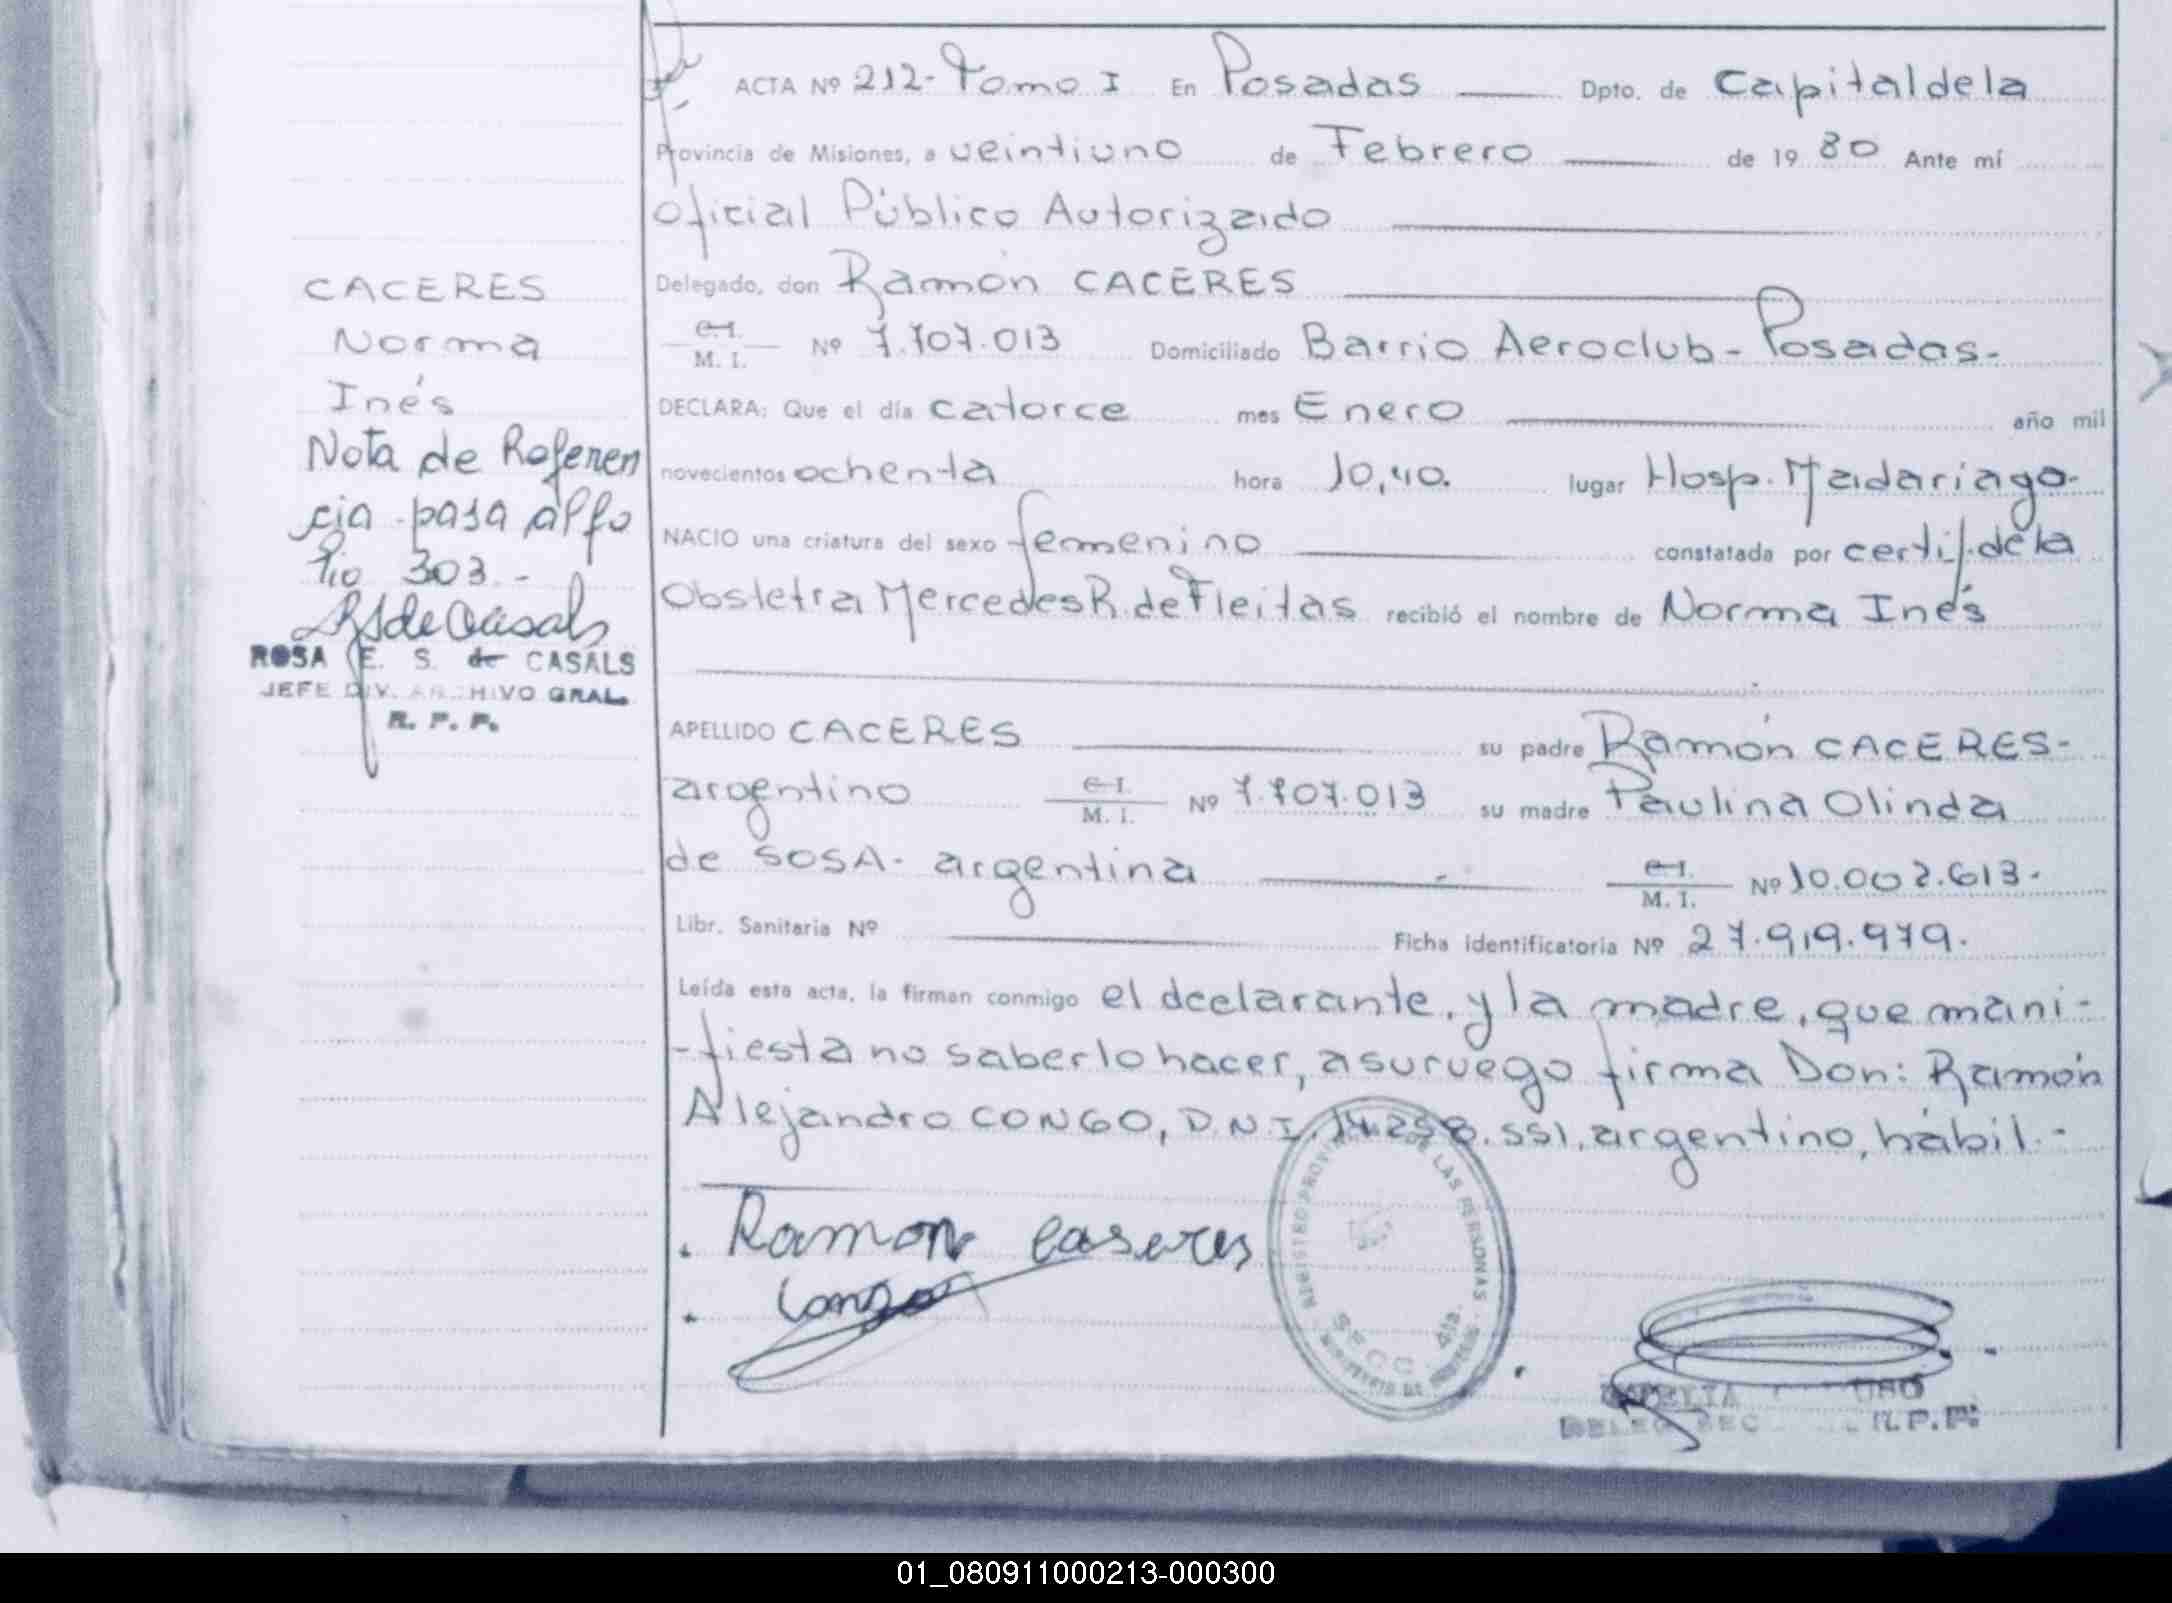 ACTA Nº 212- Tomo I En Posadas Dpto. de Capital de la
Provincia de Misiones, a veintiuno de Febrero de 19 80 Ante mí
oficial Público Autorizado
Delegado, don Ramón CACERES
C.I. M. I. Nº 7.707.013 Domiciliado Barrio Aeroclub- Posadas-
DECLARA: Que el día catorce mes Enero año mil
novecientos ochenta hora 10,40. lugar Hosp. Madariaga-
NACIO una criatura del sexo femenino constatada por certif. de la
Obstetra Mercedes R. de Fleitas recibió el nombre de Norma Inés
APELLIDO CACERES su padre Ramón CACERES-
argentino C.I. M. I. Nº 7.707.013 su madre Paulina Olinda
de SOSA- argentina C.I. M. I. Nº 10.002.613-
Libr. Sanitaria Nº Ficha identificatoria Nº 27.919.979.
Leída esta acta, la firman conmigo el declarante, y la madre, que mani-
-fiesta no saberlo hacer, a su ruego firma Don: Ramón
Alejandro CONGO, D.N.I. 14.258.551, argentino, hábil.-
Ramon caseres
Congo
CACERES
Norma
Inés
Nota de Referen
cia pasa al fo
lio 303-
RSdeCasals
ROSA E. S. de CASALS
JEFE DIV. ARCHIVO GRAL.
R. P. P.
REGISTRO PROVINCIAL DE LAS PERSONAS
SECC. 4ta.
R.P.P.
01_080911000213-000300